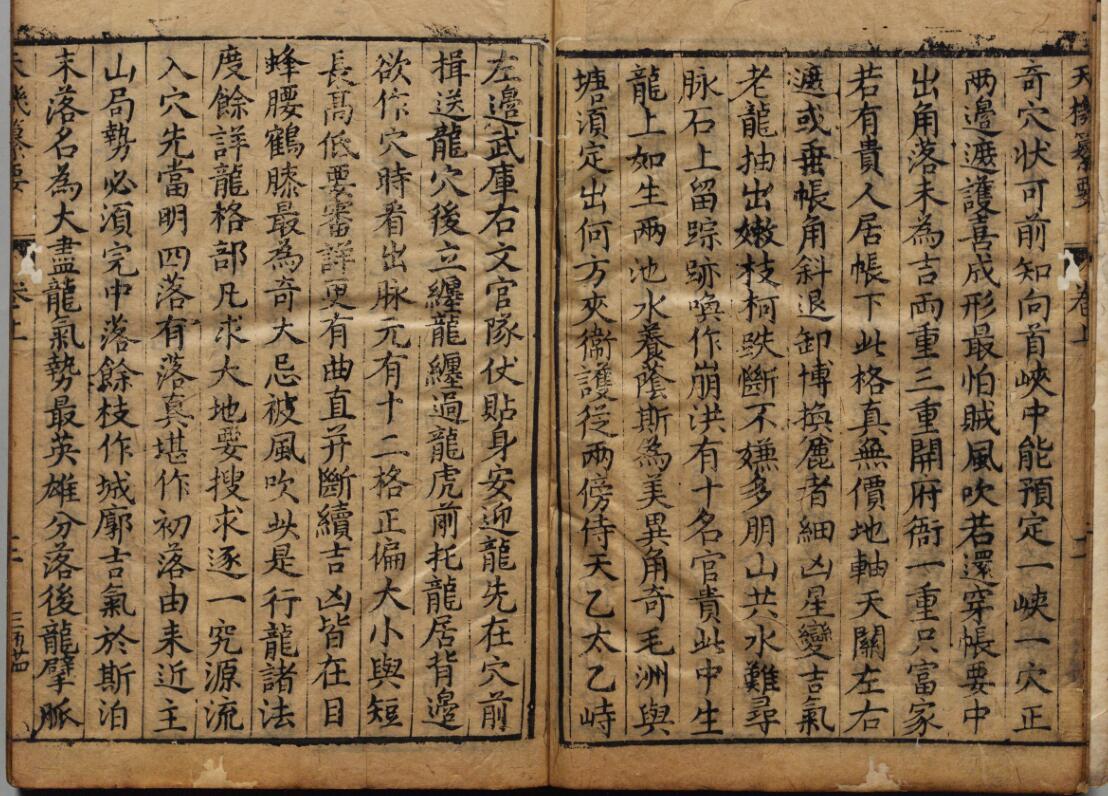 天機纂要 卷上
奇穴状可前知向首峽中能預定一峽一穴正
両邉遮護喜成形最怕賊風吹若還穿帳要中
出角落未為吉両重三重開府衙一重只富家
若有貴人居帳下此格真無價地軸天關左右
遮或垂帳角斜退卸博換麄者細凶星變吉氣
老龍抽出嫩枝柯跌斷不嫌多朋山共水難尋
脉石上留踪跡喚作崩洪有十名官貴此中生
龍上如生両池水養蔭斯為美異角奇毛洲與
塘湏定出何方夾衞護従両傍侍天乙太乙峙
左邉武庫右文官隊仗貼身安迎龍先在穴前
揖送龍穴後立纒龍纒過龍虎前托龍居背邉
欲作穴時看出脉元有十二格正偏大小與短
長髙低要審詳更有曲直并斷續吉凶皆在目
蜂腰鶴膝最為奇大忌被風吹此是行龍諸法
度餘詳龍格部凡求大地要搜求逐一究源流
入穴先當明四落有落真堪作初落由来近主
山局勢必湏完中落餘枝作城廓吉氣於斯泊
末落名為大盡龍氣勢最英雄分落後龍擘脈
天機纂要 卷上